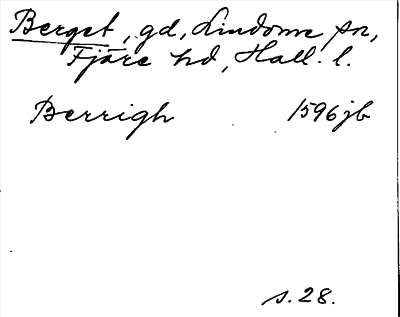 Berget, gd, Lindome sn,
Fjäre hd, Hall. l.
Berrigh 1596 jb
s. 28.